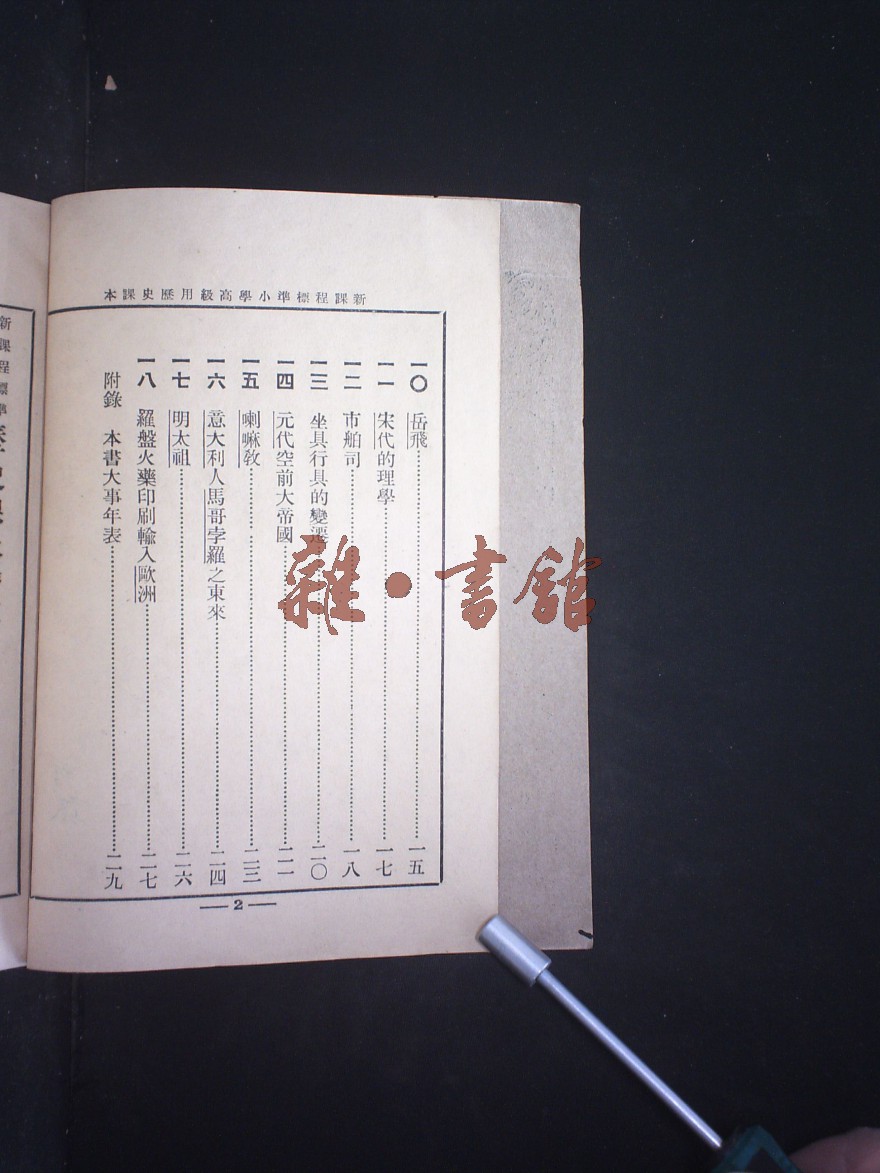 新課程標準小學高級用歷史課本
一〇 岳飛……一五
一一 宋代的理學……一七
一二 市舶司……一八
一三 坐具行具的變遷……二〇
一四 元代空前大帝國……二一
一五 喇嘛教……二三
一六 意大利人馬哥孛羅之東來……二四
一七 明太祖……二六
一八 羅盤火藥印刷輸入歐洲……二七
附錄 本書大事年表……二九
— 2 —
新課程標準
雜·書館